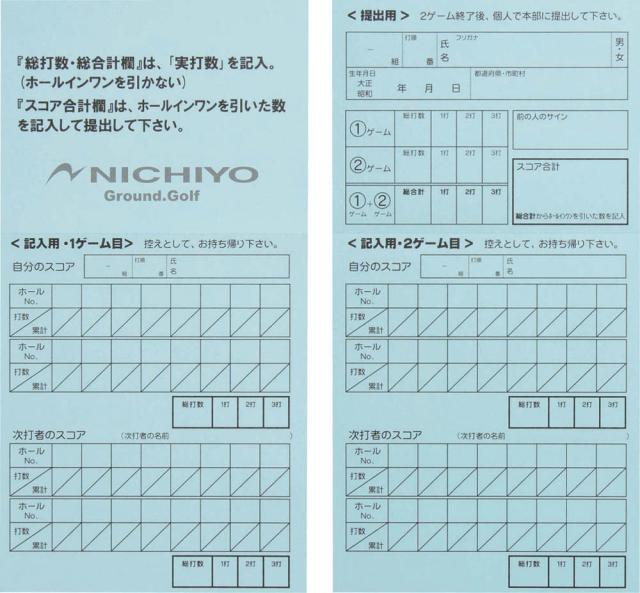 『総打数・総合計欄』は、「実打数」を記入。
(ホールインワンを引かない)
『スコア合計欄』は、ホールインワンを引いた数
を記入して提出して下さい。
NICHIYO
Ground.Golf
<記入用・1ゲーム目> 控えとして、お持ち帰り下さい。
自分のスコア － 組 打順 番 氏名
ホールNo.
打数 累計
ホールNo.
打数 累計
総打数 1打 2打 3打
次打者のスコア (次打者の名前 )
ホールNo.
打数 累計
ホールNo.
打数 累計
総打数 1打 2打 3打
<提出用> 2ゲーム終了後、個人で本部に提出して下さい。
－ 組 打順 番 フリガナ 氏名 男・女
生年月日 大正 昭和 年 月 日 都道府県・市町村
①ゲーム 総打数 1打 2打 3打
前の人のサイン
②ゲーム 総打数 1打 2打 3打
スコア合計
①ゲーム+②ゲーム 総合計 1打 2打 3打
総合計からホールインワンを引いた数を記入
<記入用・2ゲーム目> 控えとして、お持ち帰り下さい。
自分のスコア － 組 打順 番 氏名
ホールNo.
打数 累計
ホールNo.
打数 累計
総打数 1打 2打 3打
次打者のスコア (次打者の名前 )
ホールNo.
打数 累計
ホールNo.
打数 累計
総打数 1打 2打 3打